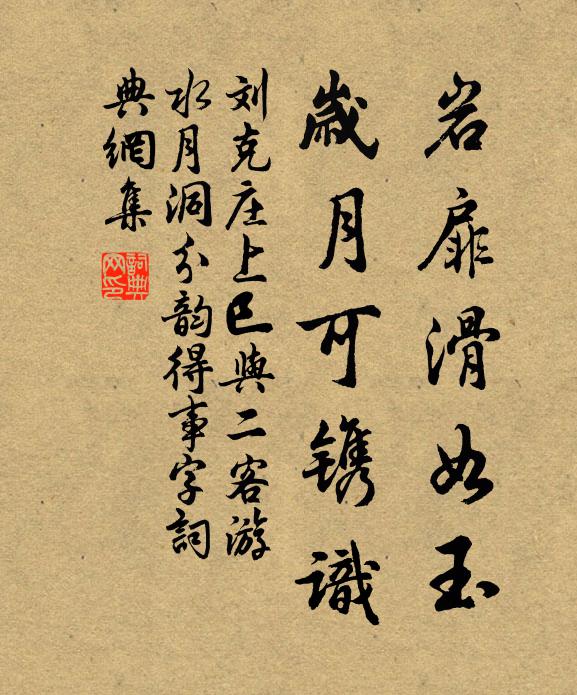 岩扉滑如玉
歲月可镌識
刘克庄上巳與二客游
水月洞分韵得事字詞
典網集
詞典
网印